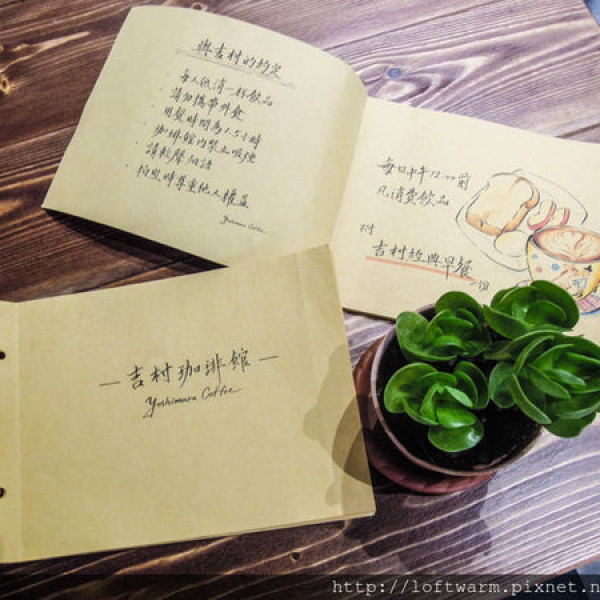 與吉村的約定
· 每人低消一杯飲品
· 請勿攜帶外食
· 用餐時間為1.5小時
· 咖啡館內禁止吸煙
· 請輕聲細語
· 拍照時尊重他人權益
Yoshimura Coffee
每日中午12:00前
凡消費飲品
附
吉村經典早餐一份
— 吉村珈琲館 —
Yoshimura Coffee
http://loftwarm.pixnet.n